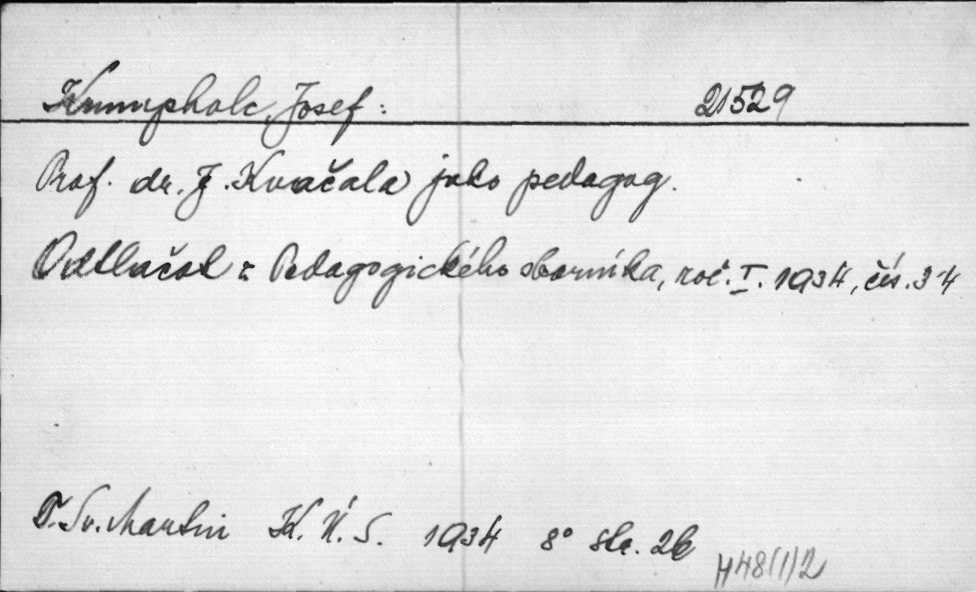 Krumpholc, Josef: 21529
Prof. dr. J. Kvačala jako pedagog.
Odtlačok z Pedagogického sborníka, roč. I. 1934, čís. 3-4
T. Sv. Martin K. Ú. S. 1934 8° str. 26
H48(1)2